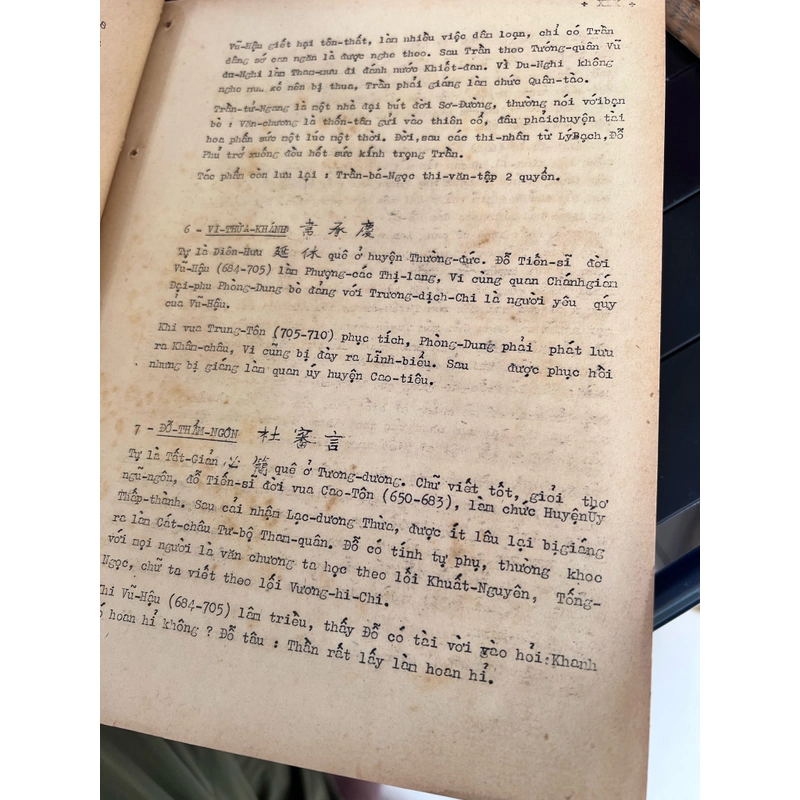 Vũ-Hậu giết hại tôn-thất, làm nhiều việc dâm loạn, chỉ có Trần
dâng sớ can ngăn là được nghe theo. Sau Trần theo Tướng-quân Vũ
du-Nghi làm Tham-mưu đi đánh nước Khiết-đan. Vì Du-Nghi không
nghe nên bị thua, Trần phải giáng làm chức Quân-tào.
Trần-tử-Ngang là một nhà đại bút đời Sơ-Đường, thường nói vớibạn
bè : Văn-chương là thốn-tâm gửi vào thiên cổ, đâu phảichuyện tài
hoa phấn sức một lúc một thời. Đời,sau các thi-nhân từ LýBạch,Đỗ
Phủ trở xuống đều hết sức kính trọng Trần.
Tác phẩm còn lưu lại : Trần-bá-Ngọc thi-văn-tập 2 quyển.
6 - VI-THỪA-KHÁNH 韋承慶
Tự là Diên-Hưu 延休 quê ở huyện Thường-đức. Đỗ Tiến-sĩ đời
Vũ-Hậu (684-705) làm Phượng-các Thị-lang, Vi cùng quan Chánhgián
Đại-phu Phòng-Dung bè đảng với Trương-dịch-Chi là người yêu qúy
của Vũ-Hậu.
Khi vua Trung-Tôn (705-710) phục tích, Phòng-Dung phải phát lưu
ra Khâm-châu, Vi cũng bị đày ra Lĩnh-biểu. Sau được phục hồi
nhưng bị giáng làm quan úy huyện Cao-tiêu.
7 - ĐỖ-THẨM-NGÔN 杜審言
Tự là Tất-Giản 必簡 quê ở Tương-dương. Chữ viết tốt, giỏi thơ
ngũ-ngôn, đỗ Tiến-sĩ đời vua Cao-Tôn (650-683), làm chức HuyệnỦy
Thấp-thành. Sau cải nhận Lạc-dương Thừa, được ít lâu lại bịgiáng
ra làm Cát-châu Tư-bộ Than-quân. Đỗ có tính tự phụ, thương khoc
với mọi người là văn chương ta học theo lối Khuất-Nguyên, Tống-
Ngọc, chữ ta viết theo lối Vương-hi-Chi.
Khi Vũ-Hậu (684-705) lâm triều, thấy Đỗ có tài vời vào hỏi:Khanh
có hoan hỉ không ? Đỗ tâu : Thần rất lấy làm hoan hỉ.